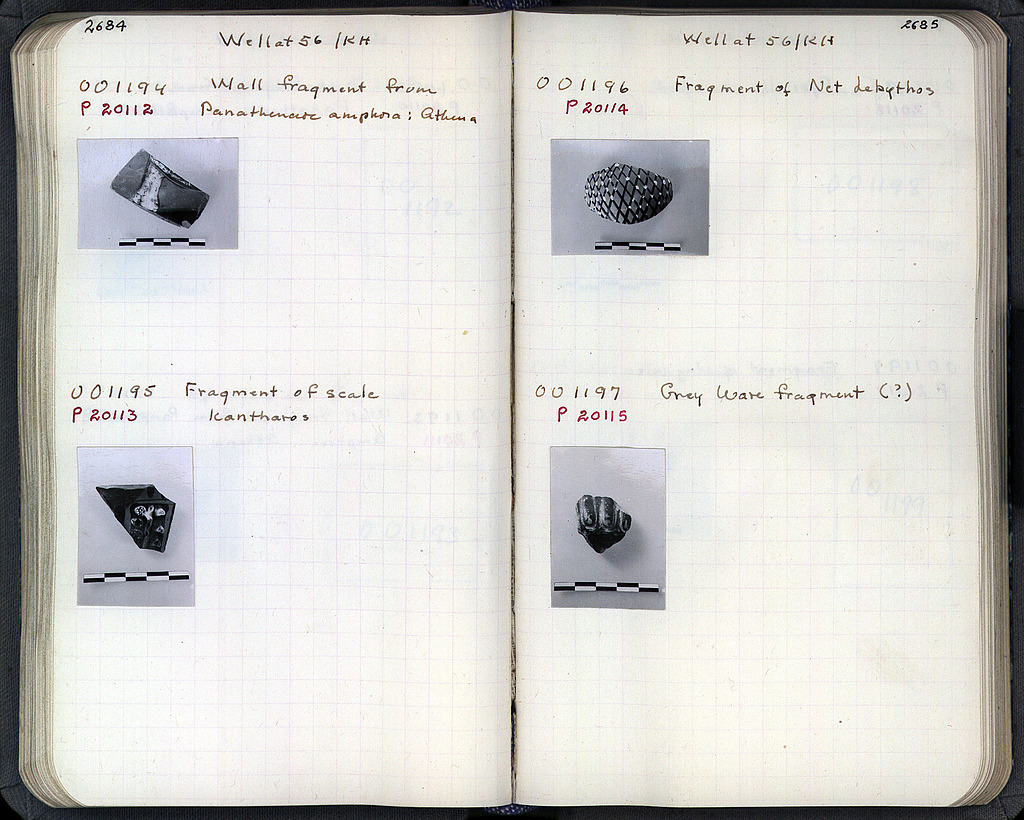 2684
Well at 56/KH
001194 Wall fragment from
P 20112 Panathenaic amphora: Athena
001195 Fragment of scale
P 20113 Kantharos
2685
Well at 56/KH
001196 Fragment of Net Lekythos
P 20114
001197 Grey Ware fragment (?)
P 20115